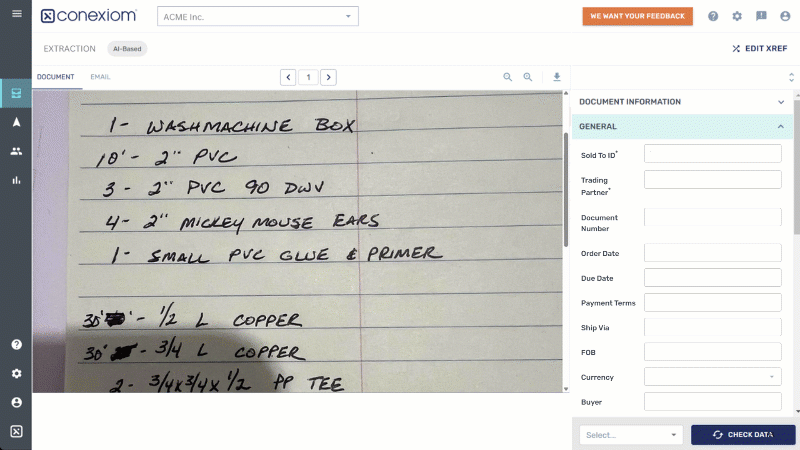 conexiom
ACME Inc.
WE WANT YOUR FEEDBACK
EXTRACTION
AI-Based
EDIT XREF
DOCUMENT
EMAIL
1
1 - WASHMACHINE BOX
10' - 2" PVC
3 - 2" PVC 90 DWV
4 - 2" MICKEY MOUSE EARS
1 - SMALL PVC GLUE & PRIMER
30' - 1/2 L COPPER
30' - 3/4 L COPPER
2 - 3/4x3/4x1/2 PP TEE
DOCUMENT INFORMATION
GENERAL
Sold To ID*
Trading
Partner*
Document
Number
Order Date
Due Date
Payment Terms
Ship Via
FOB
Currency
Buyer
Select...
CHECK DATA